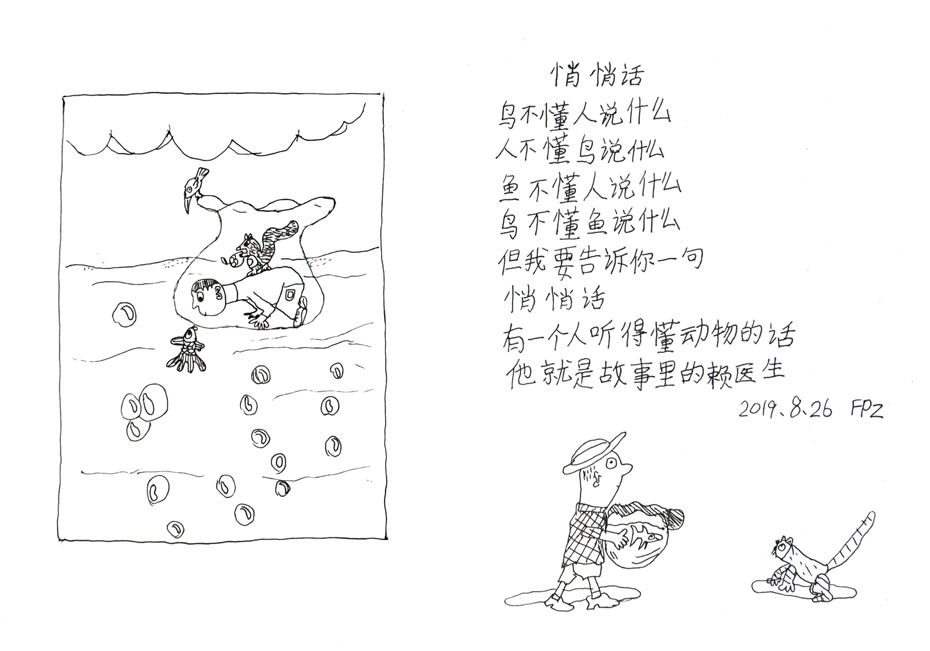 悄悄话
鸟不懂人说什么
人不懂鸟说什么
鱼不懂人说什么
鸟不懂鱼说什么
但我要告诉你一句
悄悄话
有一个人听得懂动物的话
他就是故事里的赖医生
2019、8、26 FPZ